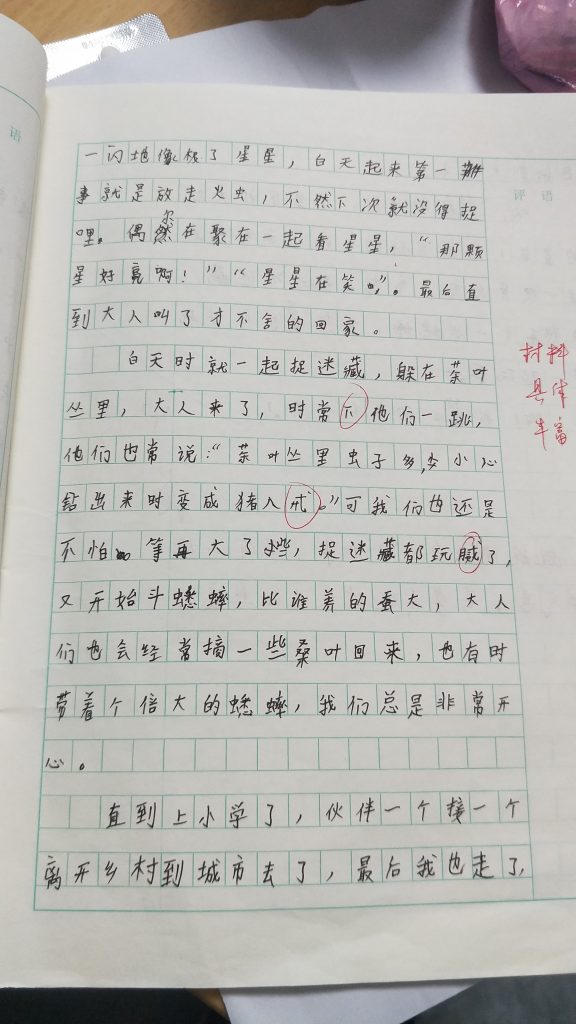 语
评 语
一闪地像极了星星，白天起来第一件
事就是放走火虫，不然下次就没得捉
哩。偶尔然在聚在一起看星星，“那颗
星好亮啊！”“星星在笑。”。最后直
到大人叫了才不舍的回家。
白天时就一起捉迷藏，躲在茶叶
丛里，大人来了，时常下他们一跳，
他们也常说：“茶叶丛里虫子多，小心
钻出来时变成猪八戒。”可我们也还是
不怕。等再大了些，捉迷藏都玩腻了，
又开始斗蟋蟀，比谁养的蚕大，大人
们也会经常摘一些桑叶回来，也有时
带着个倍大的蟋蟀，我们总是非常开
心。
直到上小学了，伙伴一个接一个
离开乡村到城市去了，最后我也走了，
材料
具体
丰富